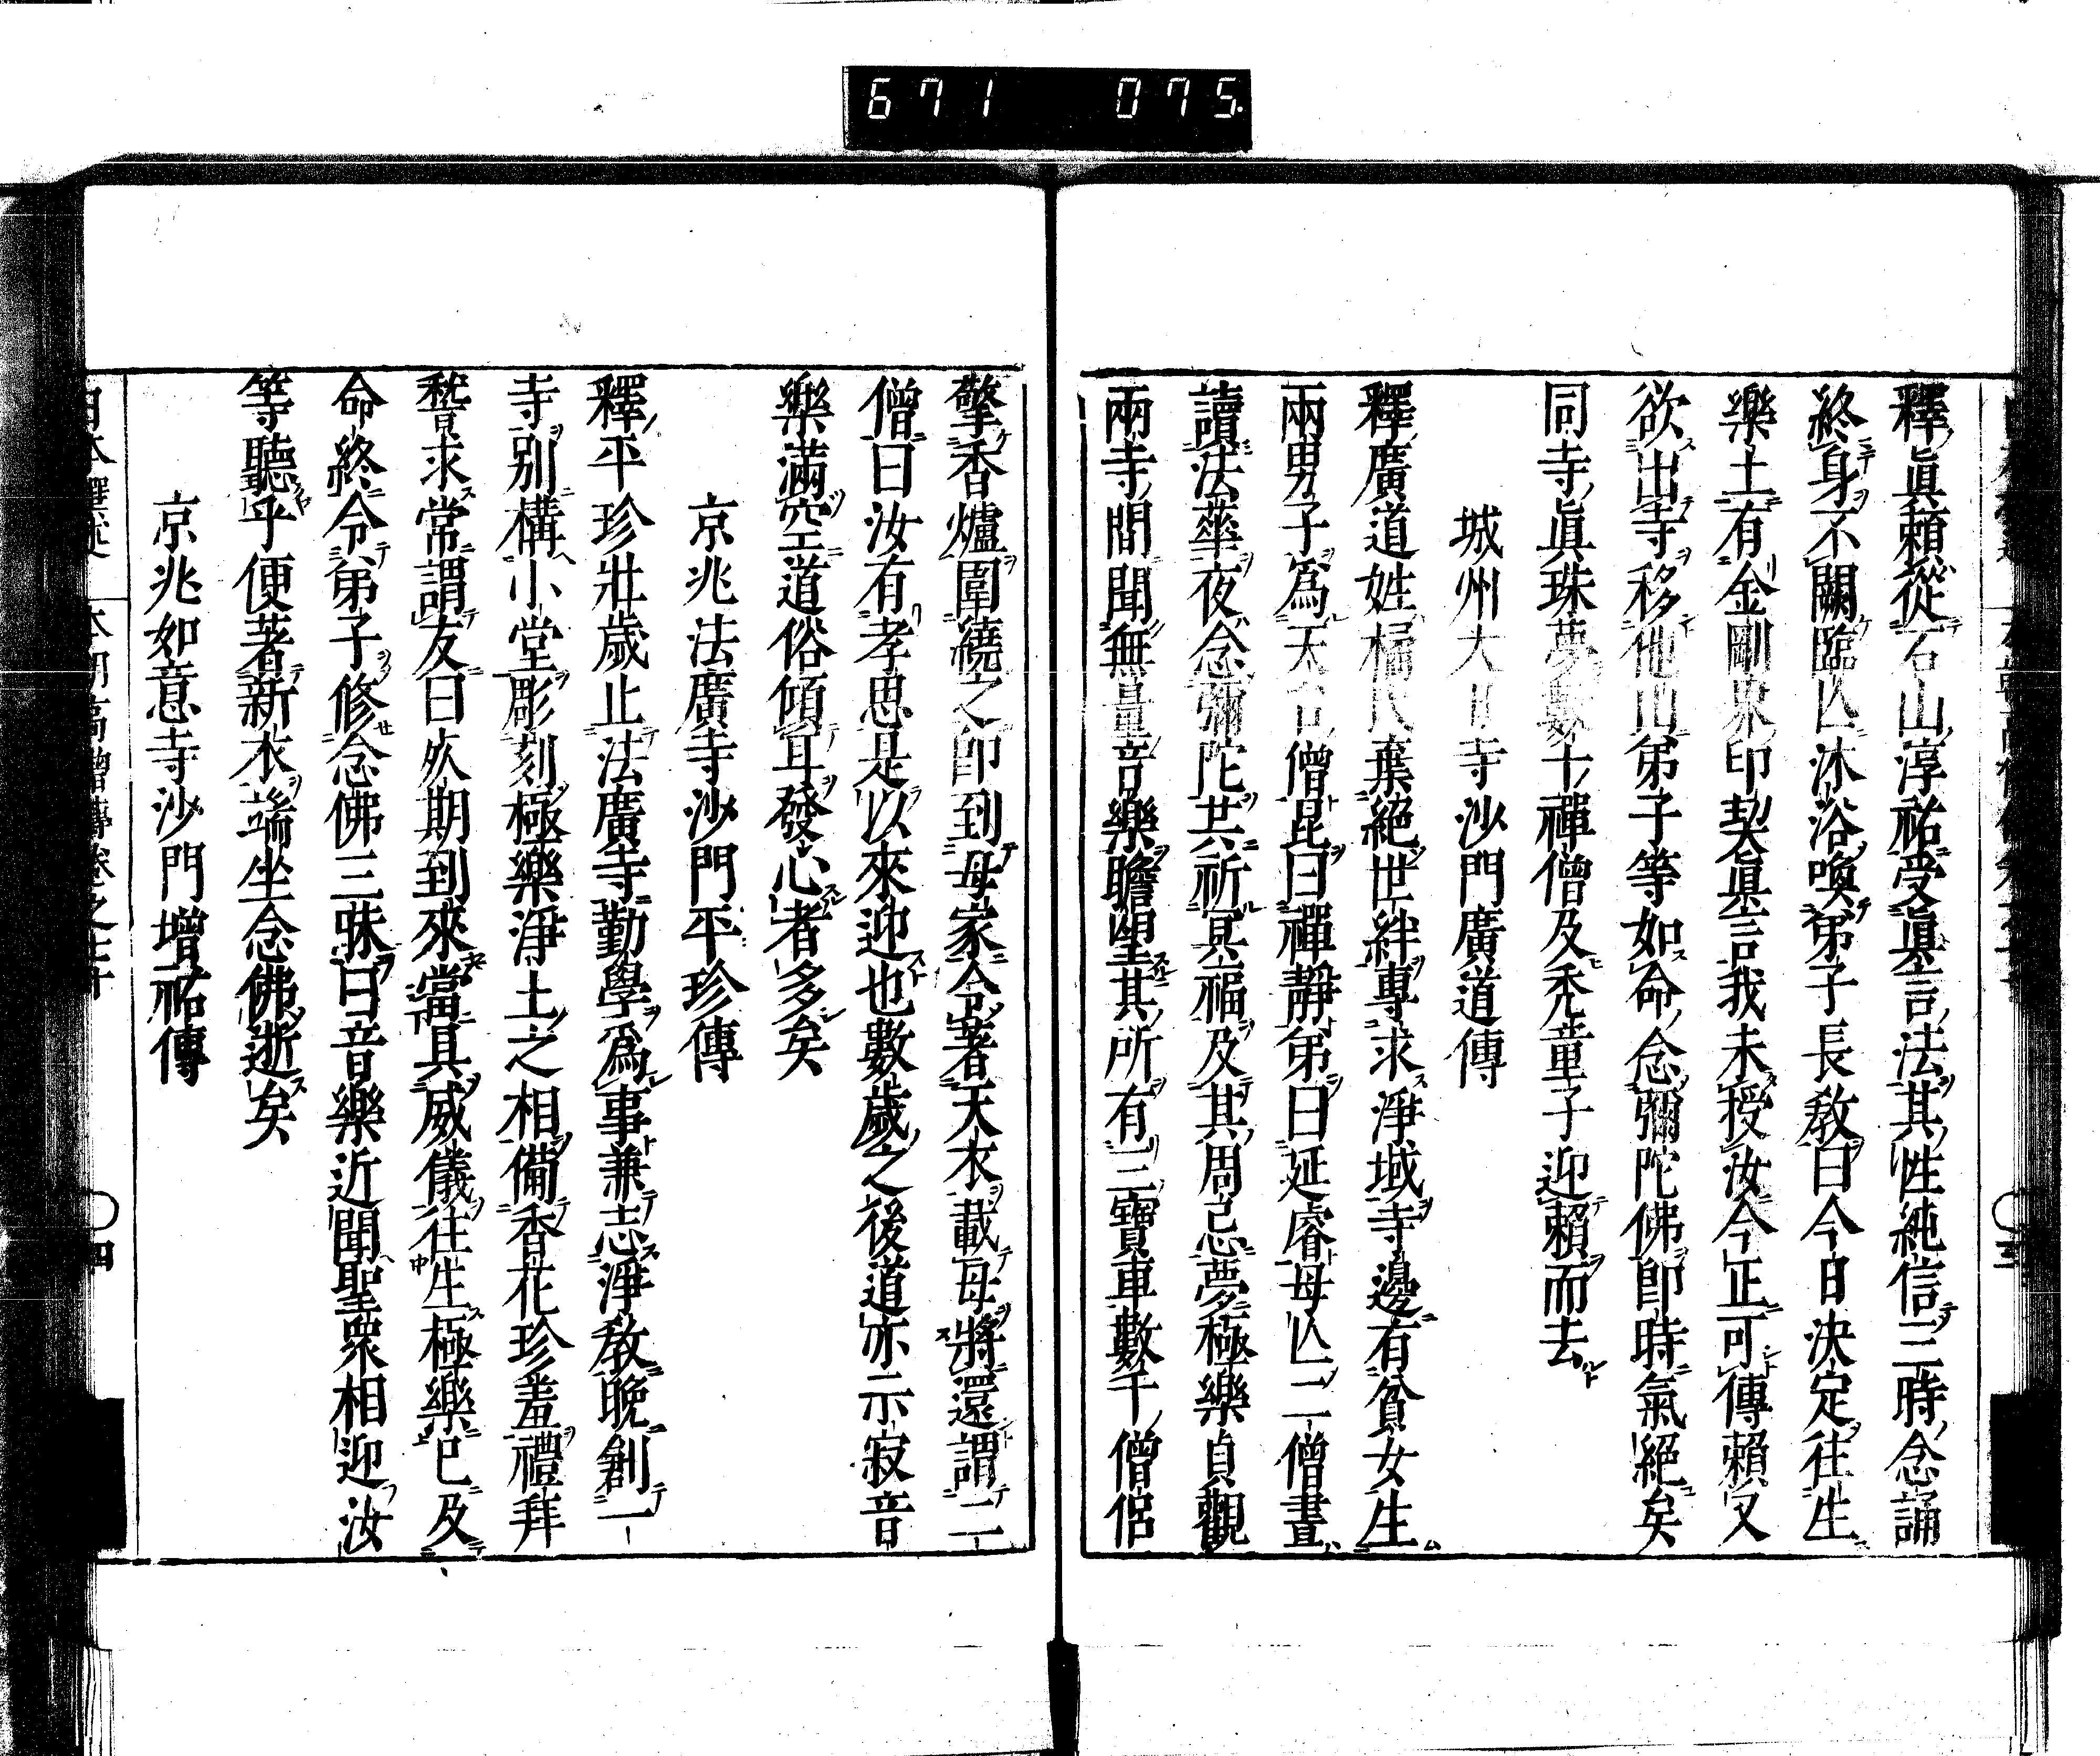 671 075.
釋眞賴從石山淳祐受眞言法其性純信三時念誦
終身不闕臨亾沐浴喚弟子長敎曰今日決定往生
樂土有金剛界印契眞言我未授汝今正可傳賴又
欲出寺移他山弟子等如命念彌陀佛卽時氣絕矣
同寺眞珠夢數十禪僧及禿童子迎賴而去
城州大日寺沙門廣道傳
釋廣道姓橘氏棄絕世絆專求淨域寺邊有貧女生
兩男子爲天台僧昆曰禪靜弟曰延睿母亾二僧晝
讀法華夜念彌陀共祈冥福及其周忌夢極樂貞觀
兩寺間聞無量音樂瞻望其所有三寶車數千僧侶
擎香爐圍繞之卽到母家令著天衣載母將還謂二
僧曰汝有孝思是以來迎也數歲之後道亦示寂音
樂滿空道俗傾耳發心者多矣
京兆法廣寺沙門平珍傳
釋平珍壯歲止法廣寺勤學爲事兼志淨敎晚創一
寺別構小堂彫刻極樂淨土之相備香花珍羞禮拜
誓求常謂友曰夾期到來當具威儀往生極樂已及
命終令弟子修念佛三昧曰音樂近聞聖衆相迎汝
等聽乎便著新衣端坐念佛逝矣
京兆如意寺沙門增祐傳
日本撰述 本朝高僧傳卷之七十 四